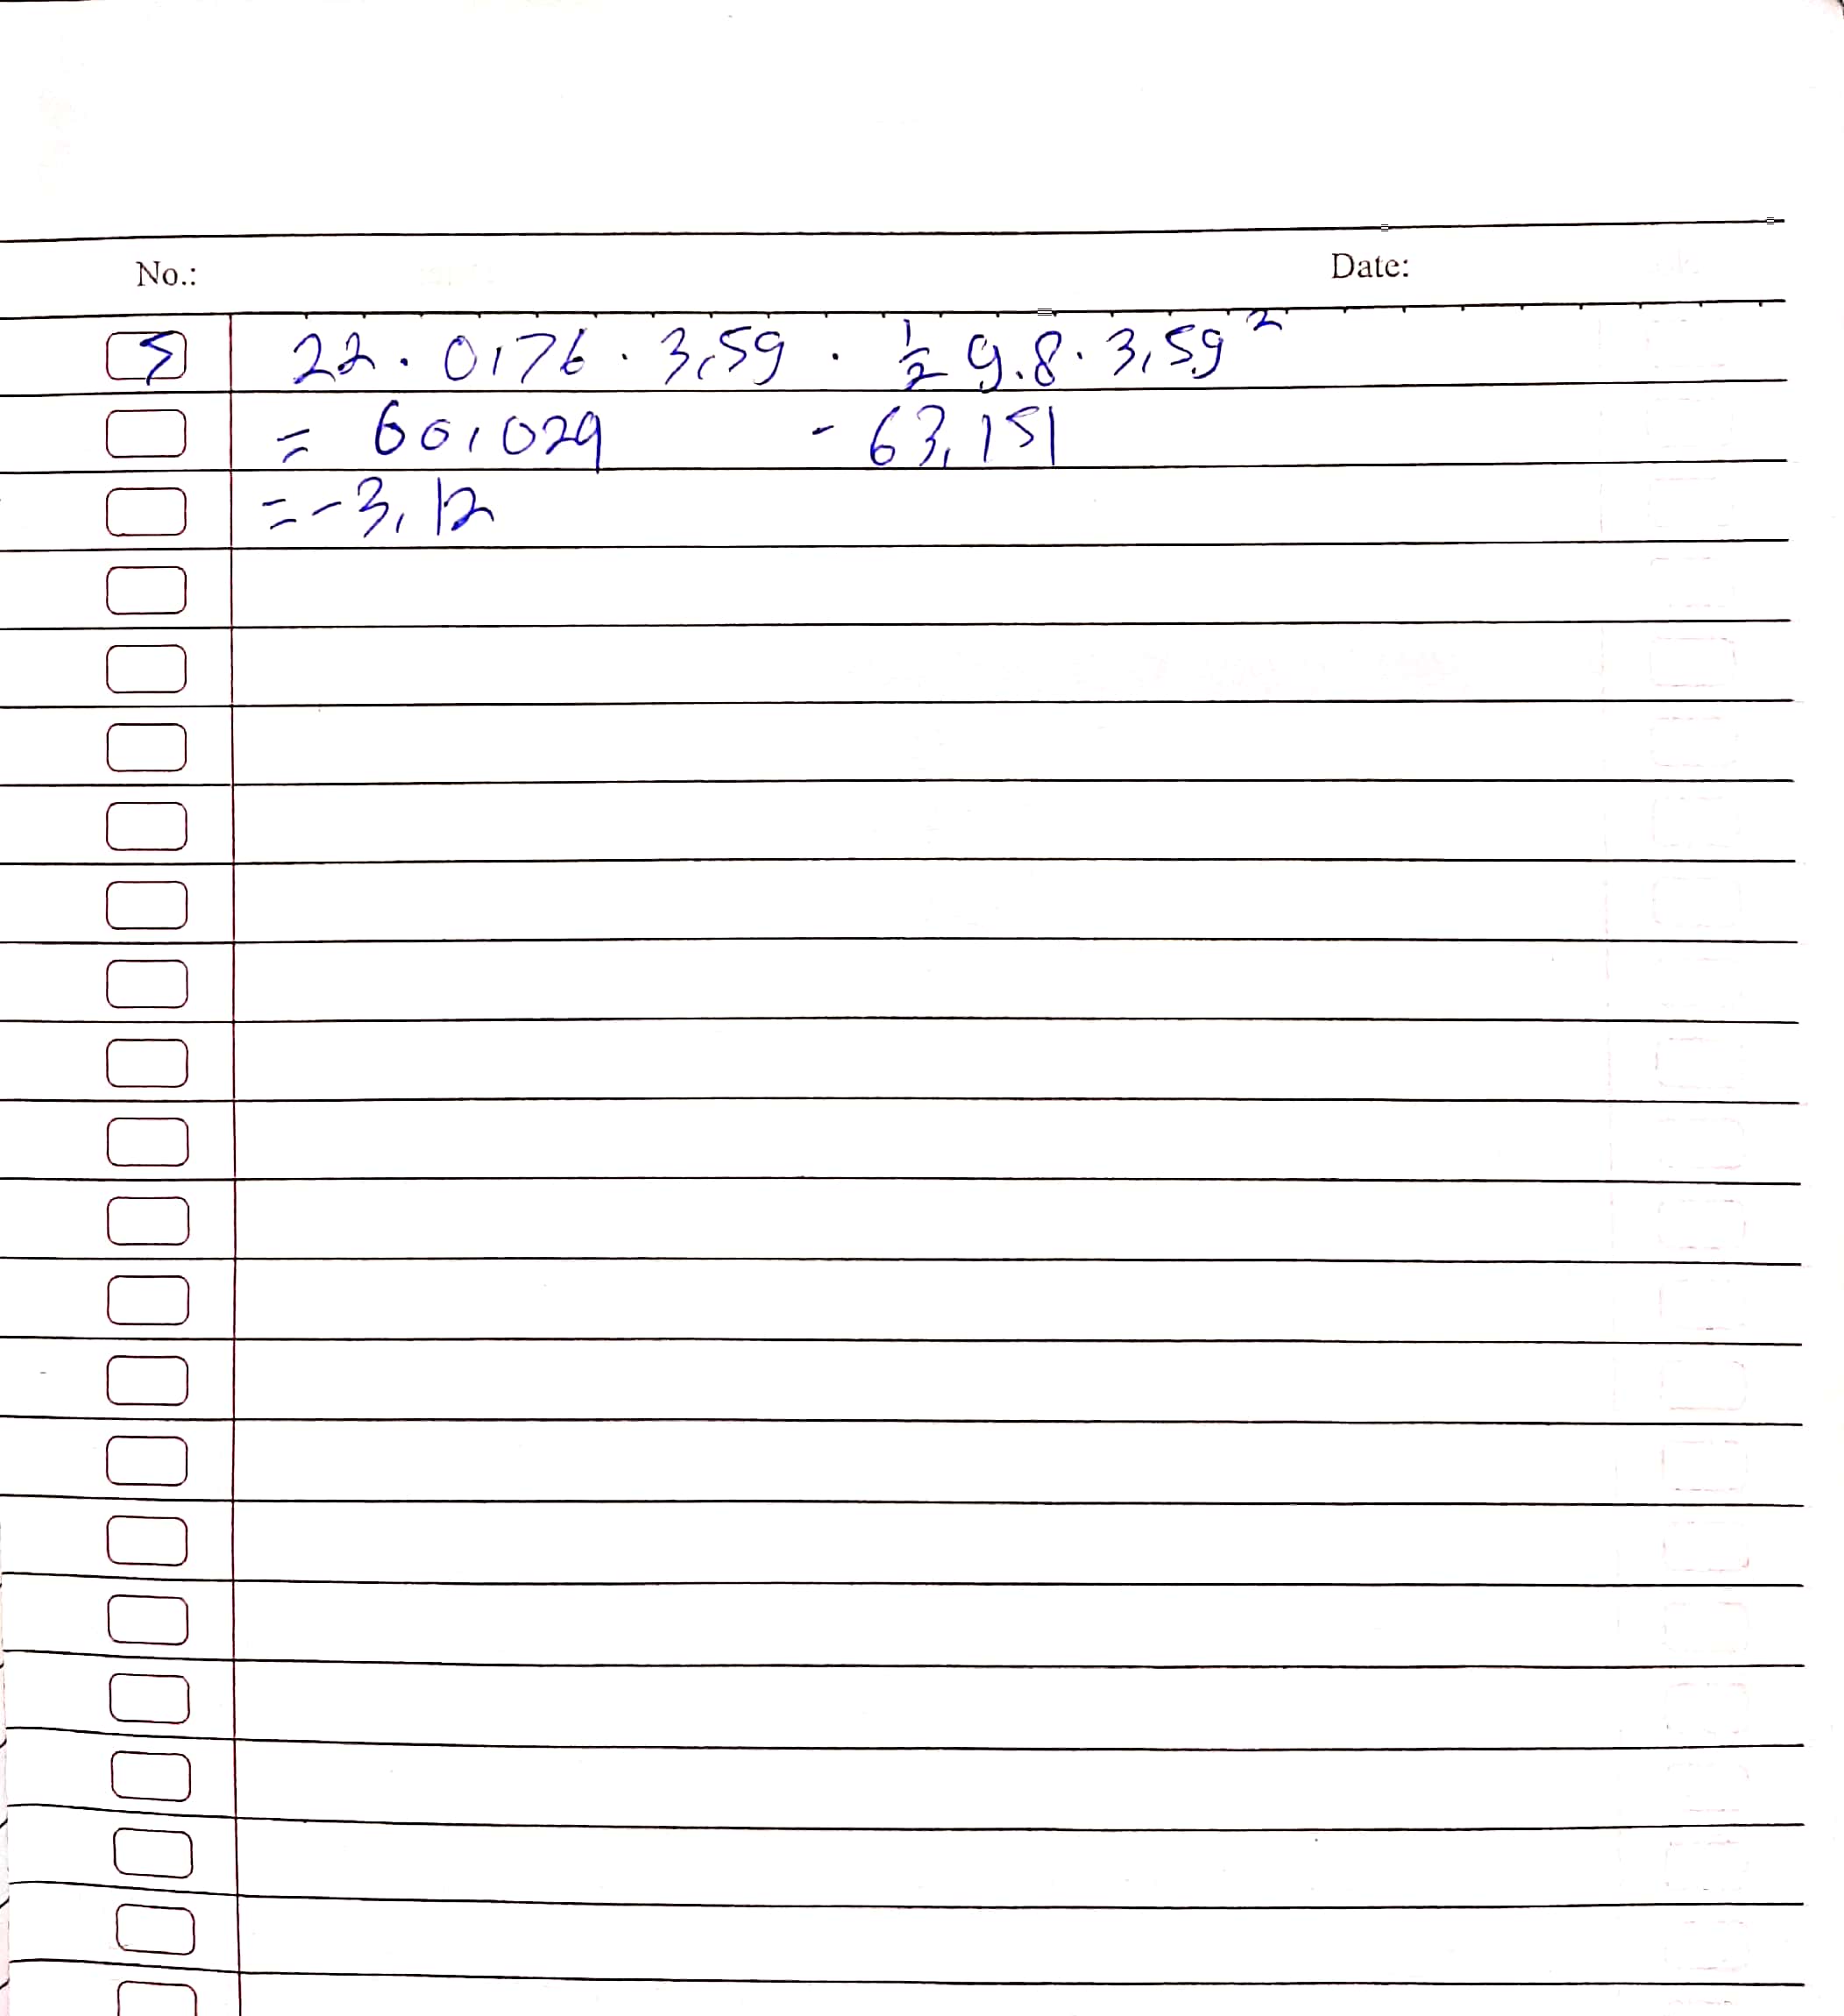 No.:
Date:
5 22 . 0,76 . 3,59 . ½ 9.8 . 3,59²
= 60,029 - 63,151
= -3,12